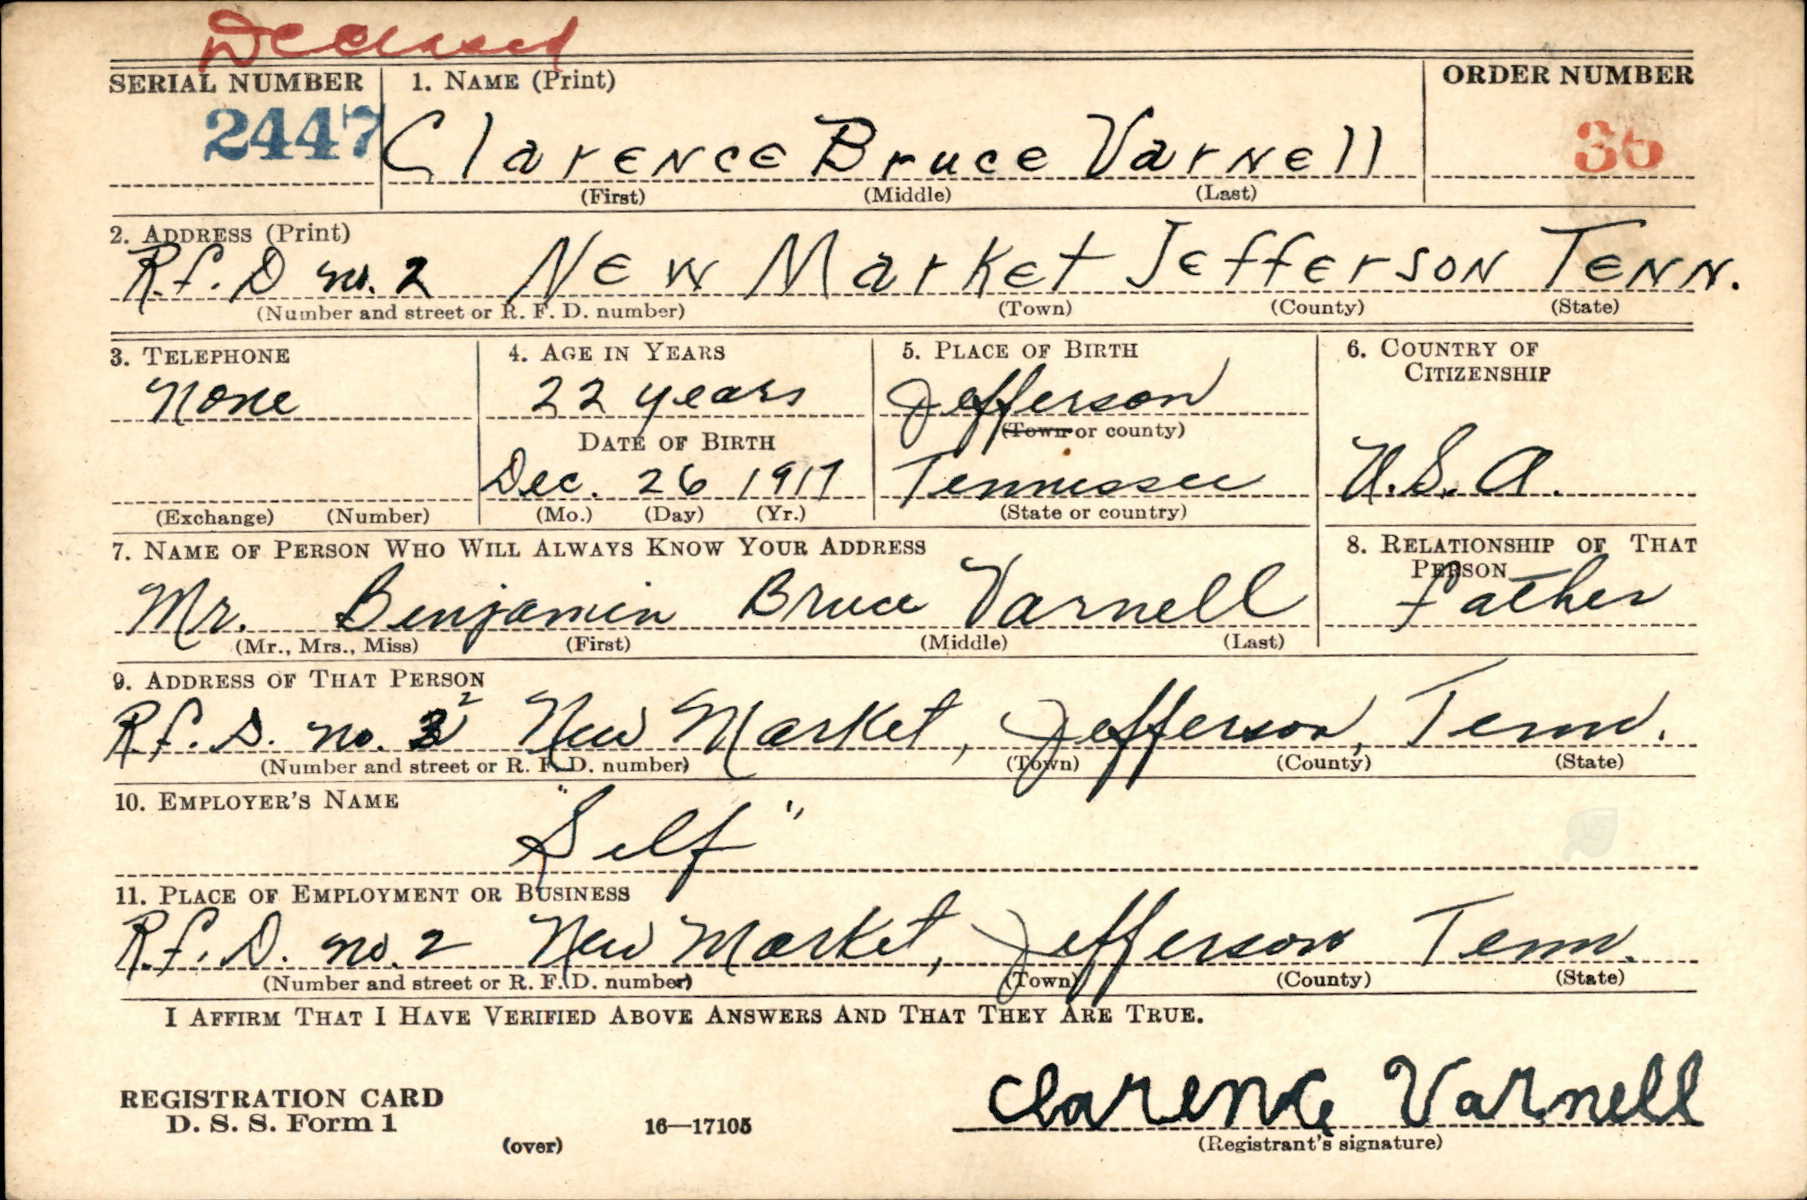 Deceased
SERIAL NUMBER 1. NAME (Print) ORDER NUMBER
2447 Clarence Bruce Varnell 35
(First) (Middle) (Last)
2. ADDRESS (Print)
R.f.D no. 2 New Market Jefferson Tenn.
(Number and street or R. F. D. number) (Town) (County) (State)
3. TELEPHONE 4. AGE IN YEARS 5. PLACE OF BIRTH 6. COUNTRY OF CITIZENSHIP
None 22 years Jefferson
DATE OF BIRTH (Town or county)
Dec. 26 1917 Tennessee U.S.A.
(Exchange) (Number) (Mo.) (Day) (Yr.) (State or country)
7. NAME OF PERSON WHO WILL ALWAYS KNOW YOUR ADDRESS 8. RELATIONSHIP OF THAT PERSON
Mr. Benjamin Bruce Varnell father
(Mr., Mrs., Miss) (First) (Middle) (Last)
9. ADDRESS OF THAT PERSON
R.f.D. no. 2 New Market, Jefferson, Tenn.
(Number and street or R. F. D. number) (Town) (County) (State)
10. EMPLOYER'S NAME
"Self"
11. PLACE OF EMPLOYMENT OR BUSINESS
R.f.D. no. 2 New Market, Jefferson Tenn.
(Number and street or R. F. D. number) (Town) (County) (State)
I AFFIRM THAT I HAVE VERIFIED ABOVE ANSWERS AND THAT THEY ARE TRUE.
Clarence Varnell
REGISTRATION CARD
D. S. S. Form 1 16—17105
(over) (Registrant's signature)